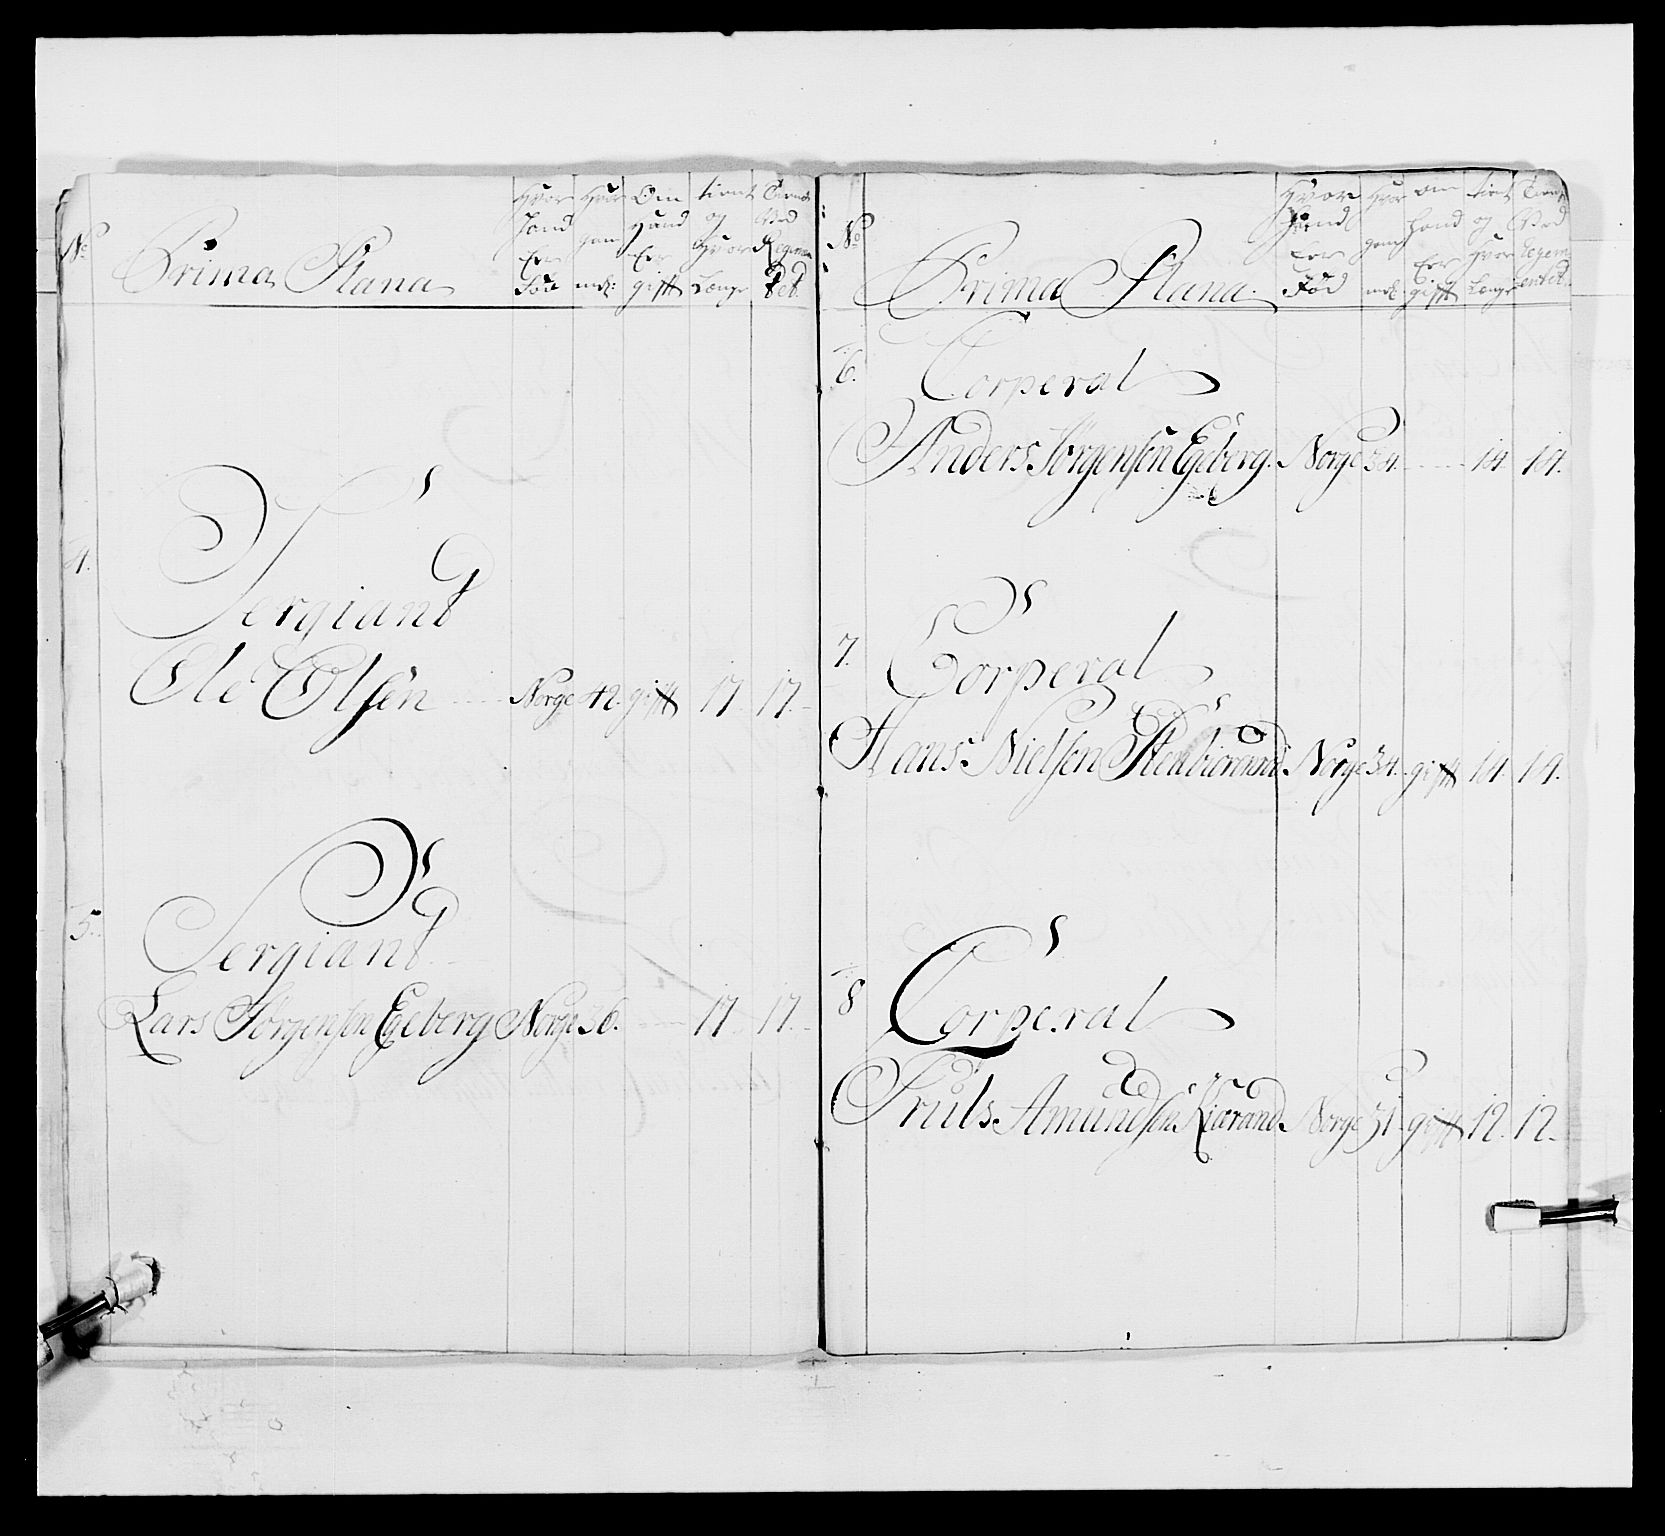 No
Prima Plana
Hvor Hand Er Fød
Hvor gam mel:
Om Hand Er gift
tient og Hvor Længe
Tient Ved Regimen tet.
4.
Sergiant
Ole Olsen Norge 42. gift 17 17.
5.
Sergiant
Lars Jørgensen Egeberg Norge 36. 17 17.
No
Prima Plana.
Hvor Hand Er Fød
Hvor gam mel
om Hand Er gift
tient og Hvor Længe
Tient Ved Regem entet.
6.
Corperal
Anders Jørgensen Egeberg. Norge 34. 14. 14.
7.
Corperal
Hans Nielsen Norge 34. gift 14. 14.
8
Corperal
Truls Amundsen Kiærand Norge 31 gift 12. 12.